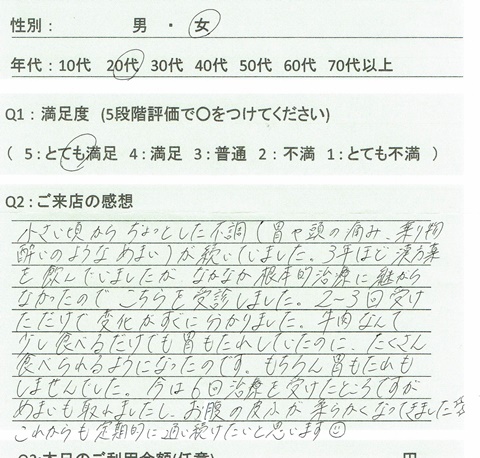 性別： 男 ・ 女
年代：10代 20代 30代 40代 50代 60代 70代以上
Q1：満足度 (5段階評価で〇をつけてください)
( 5：とても満足 4：満足 3：普通 2：不満 1：とても不満 )
Q2：ご来店の感想
小さい頃から ちょっとした不調(胃や頭の痛み、乗り物
酔いのようなめまい)が続いていました。3年ほど漢方薬
を飲んでいましたが なかなか根本的治療に繋がら
なかったので こちらを受診しました。2〜3回受け
ただけで変化がすぐに分かりました。牛肉なんて
少し食べるだけでも胃もたれしていたのに、たくさん
食べられるようになったのです。もちろん胃もたれも
しませんでした。今は6回治療を受けたところですが
めまいも取れましたし、お腹の皮ふが柔らかくなってきました
これからも定期的に通い続けたいと思います☺